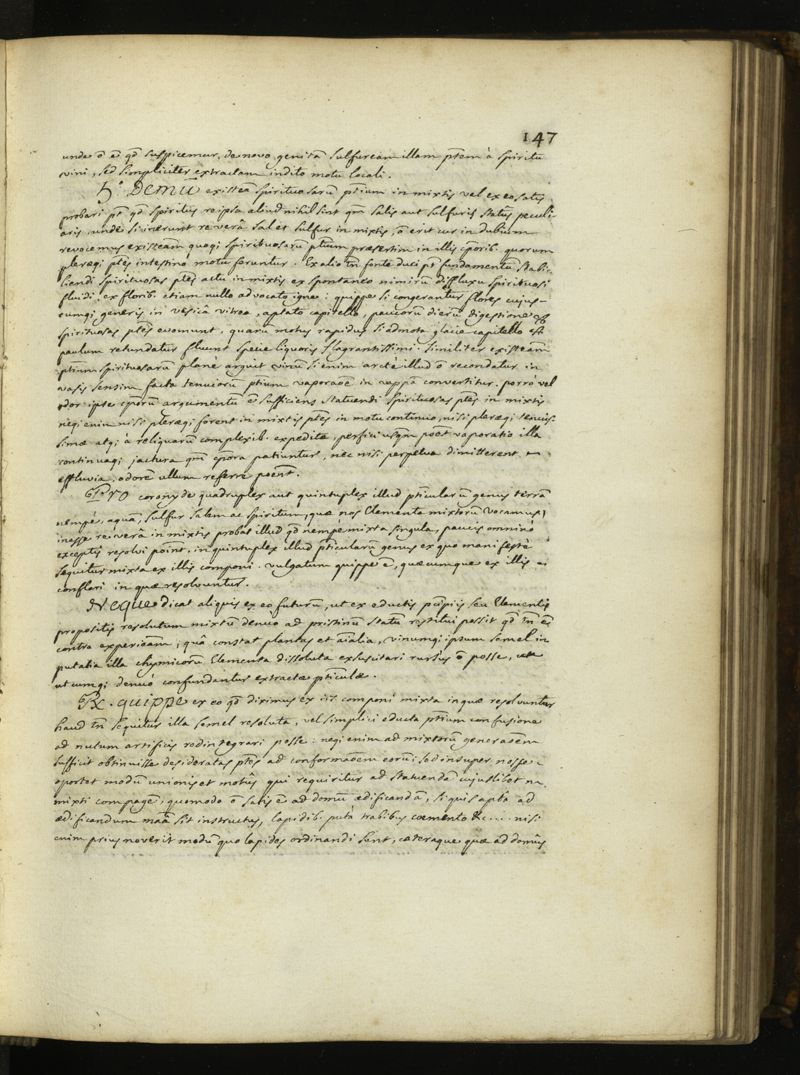 147
unde ē ēē qd suspicemur, de novo genitā sulfuream illam ptem à spiritu
vini, sed simpliciter extractam indito motu locali.
5º Demū existēa spirituosarū ptium in mixtis vel ex eo satis
probari pt qd spiritus reipsa aliud nihil sint qm salis aut sulfuris status peculi-
aris, unde si inerunt reverâ sal et sulfur in mixtis, ō erit cur in dubium
revocemus existēam quoqi spirituosarū ptium præsertim in illis cporib. quorum
pleræqi ptes intestino motu feruntur. Ex alio tn fonte duci pt fundamentū stabi-
liendi spirituosas ptes actu in mixtis ex spontaneo nimirū diffluxu spirituosi
fluidi, ex florib. etiam nullo advocato igne: quippe si congerantur flores cujus-
cumqi generis in vesica vitrea, aptato capitello, paucorū dierū digestione
spirituosas ptes evomunt, quarū motus rapidus si admota glacie capitello
paulum retundatur fluunt specie liquoris flagrantissimi. Similiter existēam
ptium spirituosarū planè arguit vinū si enim arctè illud ō recondatur in
vasis sensim facta tenuiorū ptium vaporaōe in vappā convertitur. porrò vel
odor ipse cporū argumentū ē sufficiens statuendi spirituosas ptes in mixtis
neqi enim nisi pleræqi forent in mixtis ptes in motu continuo, nisi pleræqi tenuis-
simæ atqi à reliquarū complexib. expeditæ, perfici usqm poet vaporatio illa
continuaqi jactura qm cpora patiuntur, nec nisi perpetua dimitterent
effluvia, odorē ullum referre poent.
Pro coronyde quadruplex aut quintuplex illud pticularū genus terrā
nempè, aquā, sulfur salem ac spiritum, quæ nos Elementa mixtorū vocamus,
inesse reverâ in mixtis probat illud qd nempè mixta singula, paucis omninò
exceptis resolvi point. in quintuplex illud pticularū genus ex quo manifestè
sequitur mixta ex illis componi. vulgatum quippe ē, quæcumque ex illis
conflari in quæ resolvuntur.
Neque dicat aliquis ex eo futurū, ut ex eductis pcipiis seu Elementis
propositis resolutum mixtū denuo ad pristinū statū restitui possit qd tn ē
contra experiōam, quâ constat plantas et aīalia, vinumqi ipsum semel in
putatia illa chymicorū Elementa dissoluta exsuscitari rursus ō posse,
utcumqi denuò confundantur extractæ pticulæ.
R. quippe ex eo qd diximus ex iis componi mixta in quæ resolvuntur
haud tn sequitur illa semel resoluta, vel simplici educta ptium confusione
ad nutum artificis redintegrari posse: neqi enim ad mixtorū generaōem
sufficit obtinuisse desideratas ptes ad conformaōem eorū: sed insuper nosse
oportet modū unionis et motûs qui requiritur ad statuendā cujuslibet
mixti compagē, quomodo ō satis ē ad domū ædificandā, si quis apta ad
ædificandum maā sit instructus, lapidib. putà trabibus cæmento &c.... nisi
enim prius noverit modū quo lapides ordinandi sunt, cæteraque quæ ad domûs